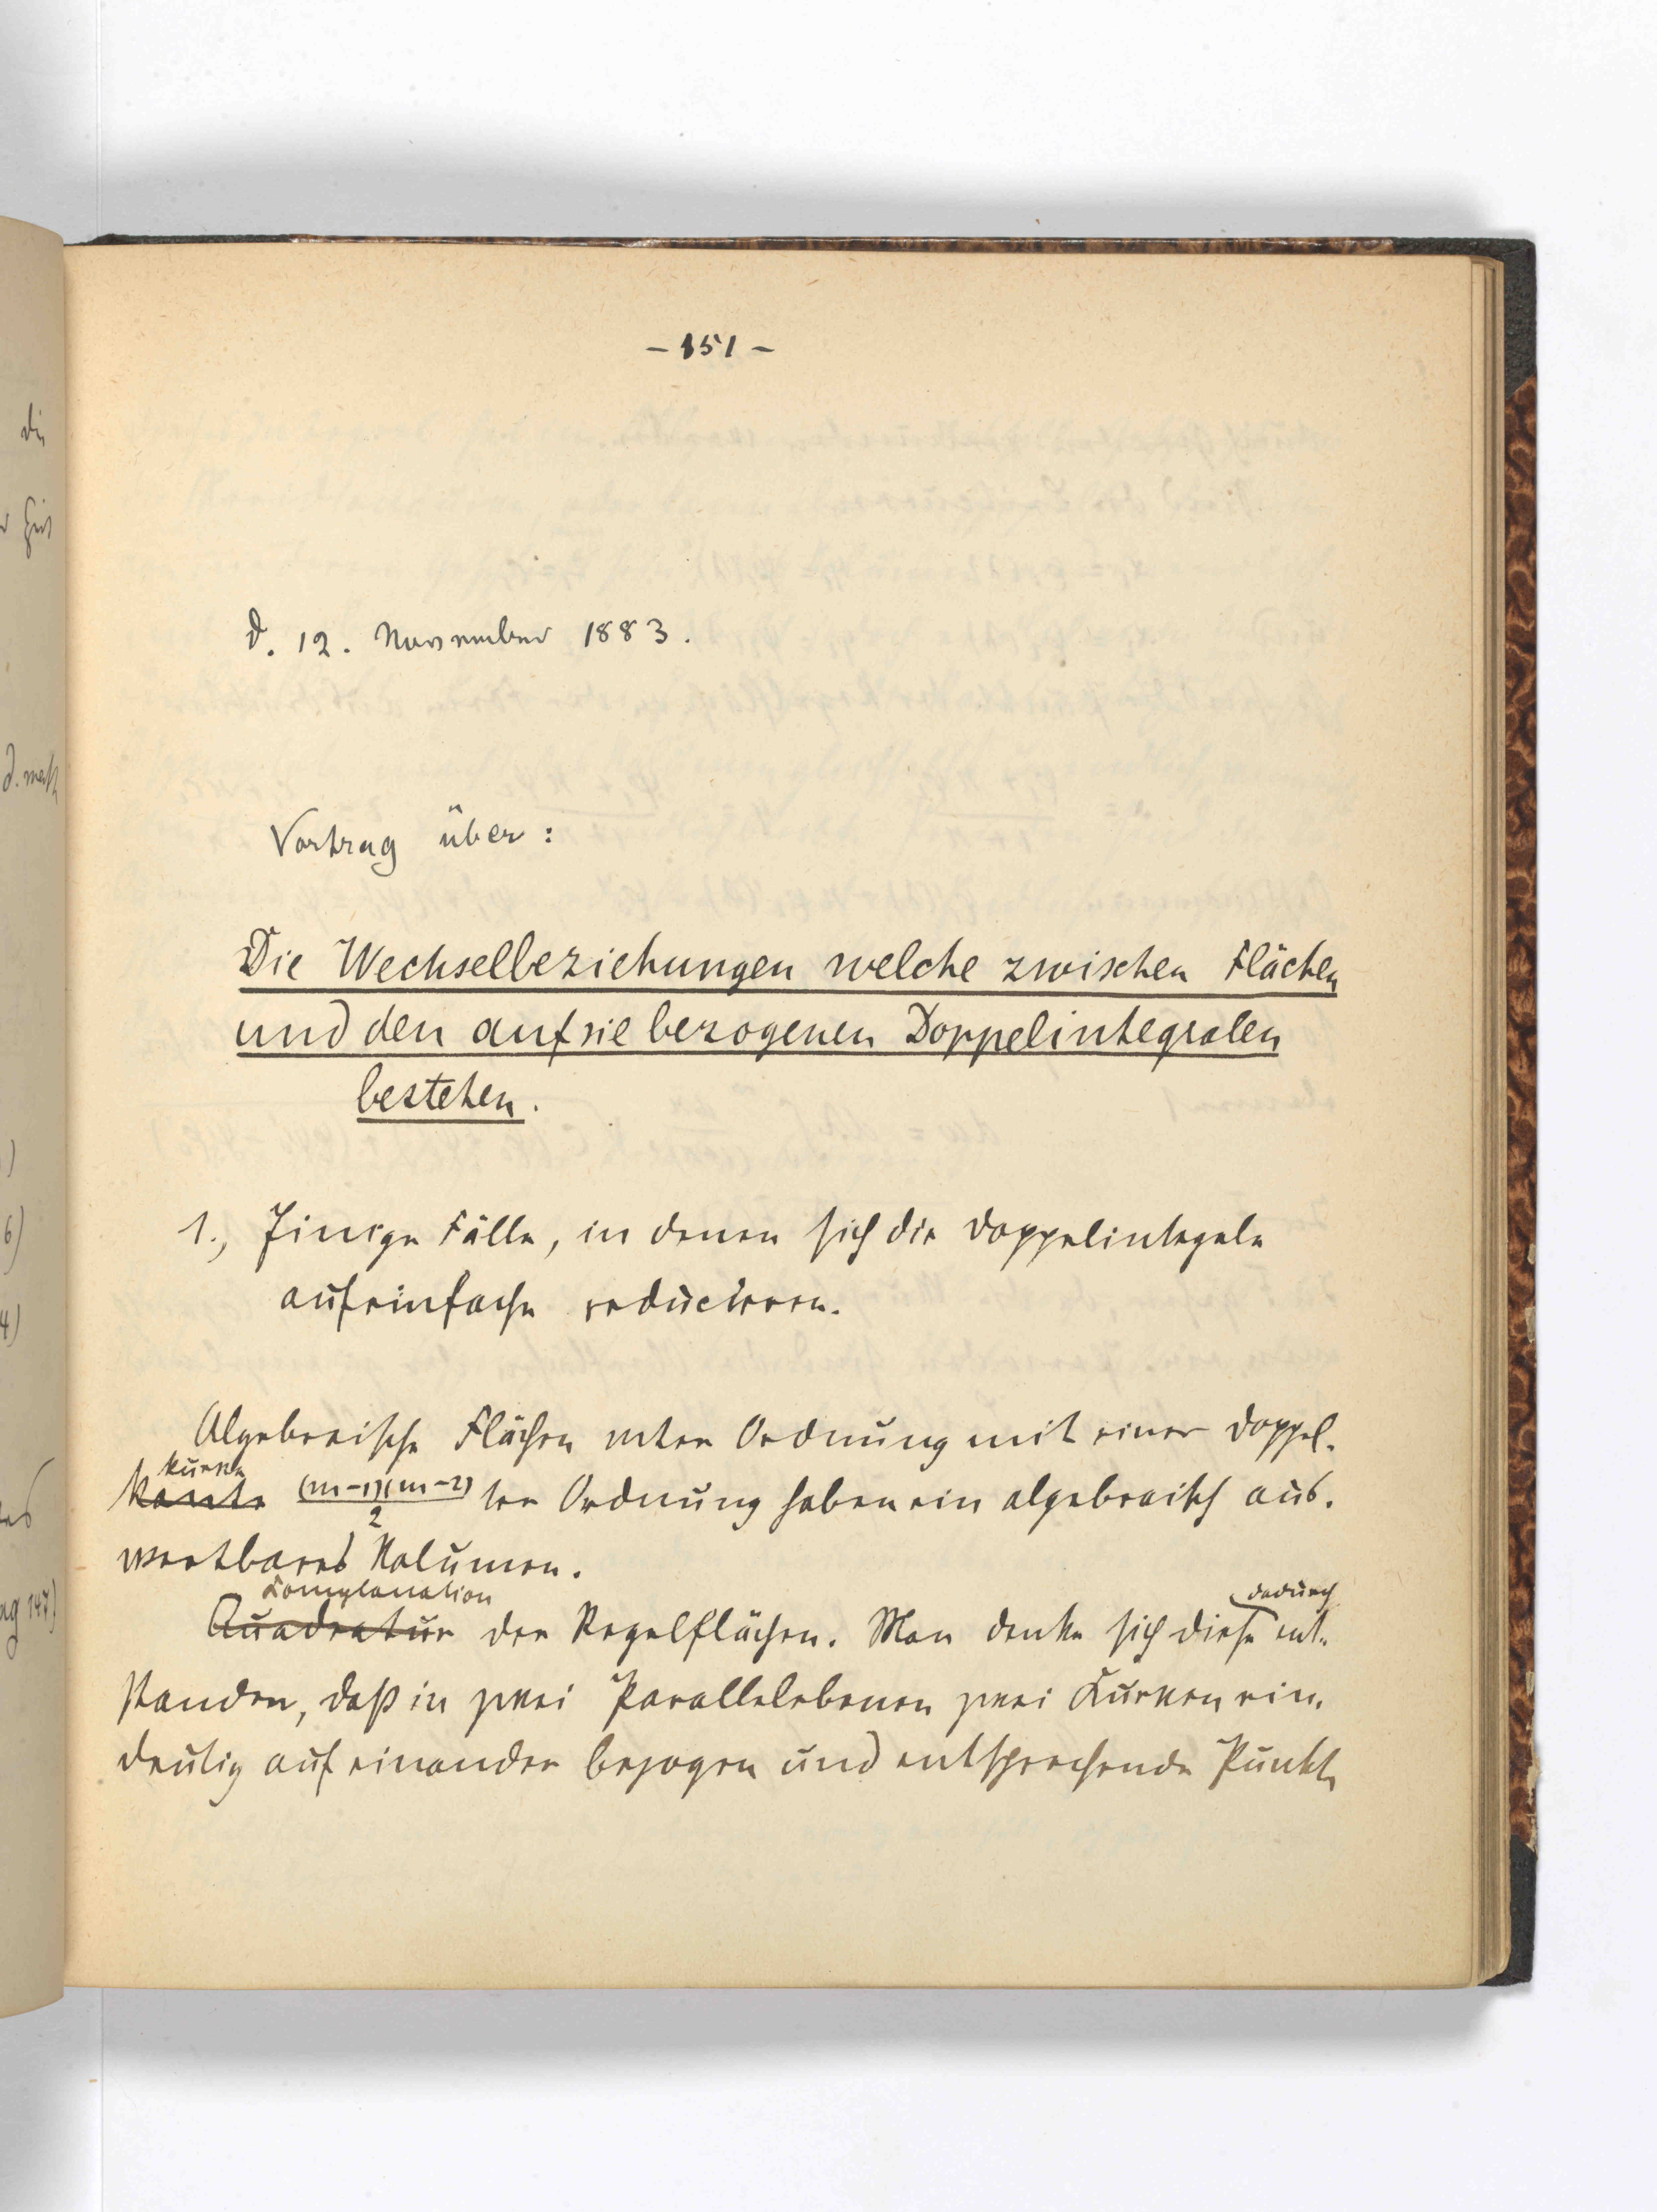 - 151 -
d. 12. November 1883.
Vortrag über:
Die Wechselbeziehungen welche zwischen Flächen
und den auf sie bezogenen Doppelintegralen
bestehen.
1., Einige Fälle, in denen sich die Doppelintegale
auf einfache reducieren.
Algebraische Flächen mter Ordnung mit einer Doppel-
kurve
kante (m-1)(m-2)/2 ter Ordnung haben ein algebraisch aus-
wertbares Volumen.
Complanation dadurch
Quadratur der Regelflächen. Man denke sich diese ent-
standen, daß in zwei Parallelebenen zwei Kurven ein-
deutig auf einander bezogen und entsprechende Punkte
die
d. math
6)
4)
pag 147)